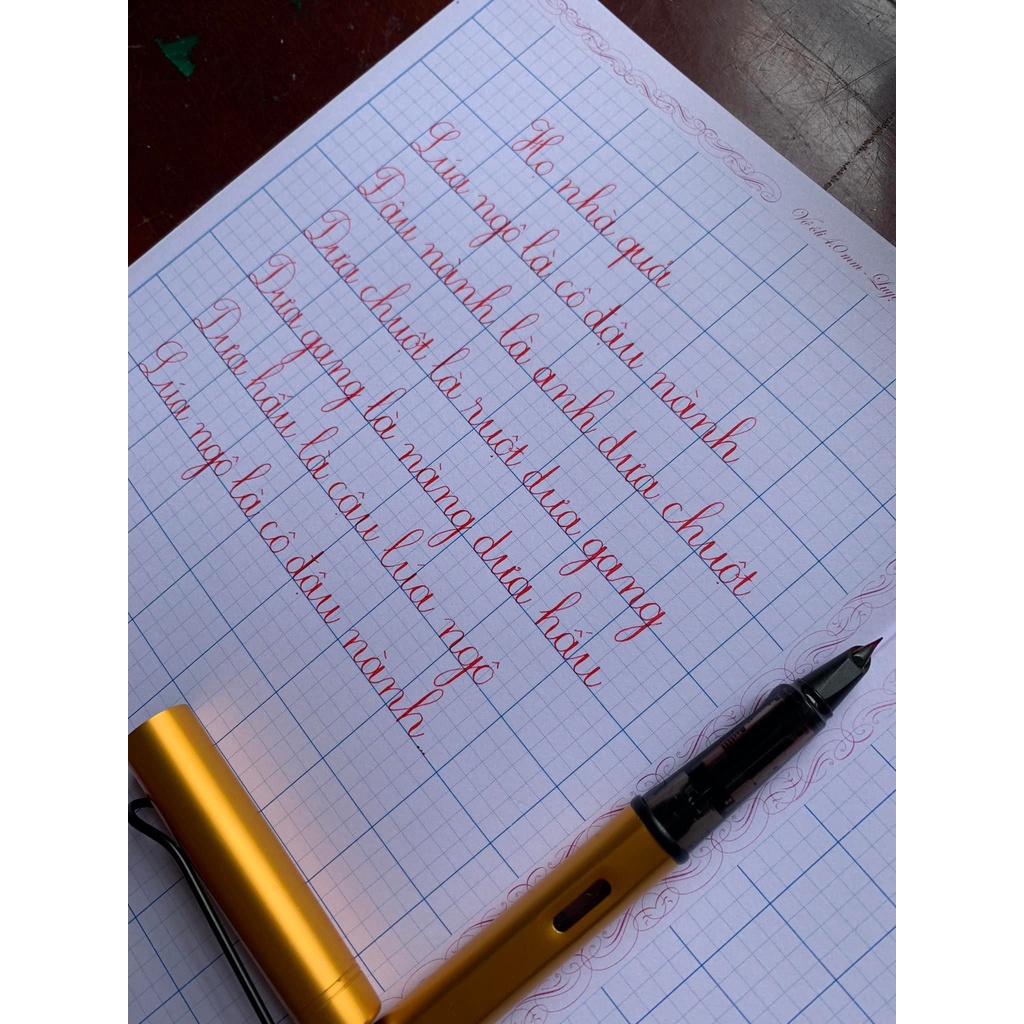 Họ nhà quả
Lúa ngô là cô đậu nành
Đậu nành là anh dưa chuột
Dưa chuột là ruột dưa gang
Dưa gang là nàng dưa hấu
Dưa hấu là cậu lúa ngô
Lúa ngô là cô đậu nành...
Vở ô li 4.0mm - Luy